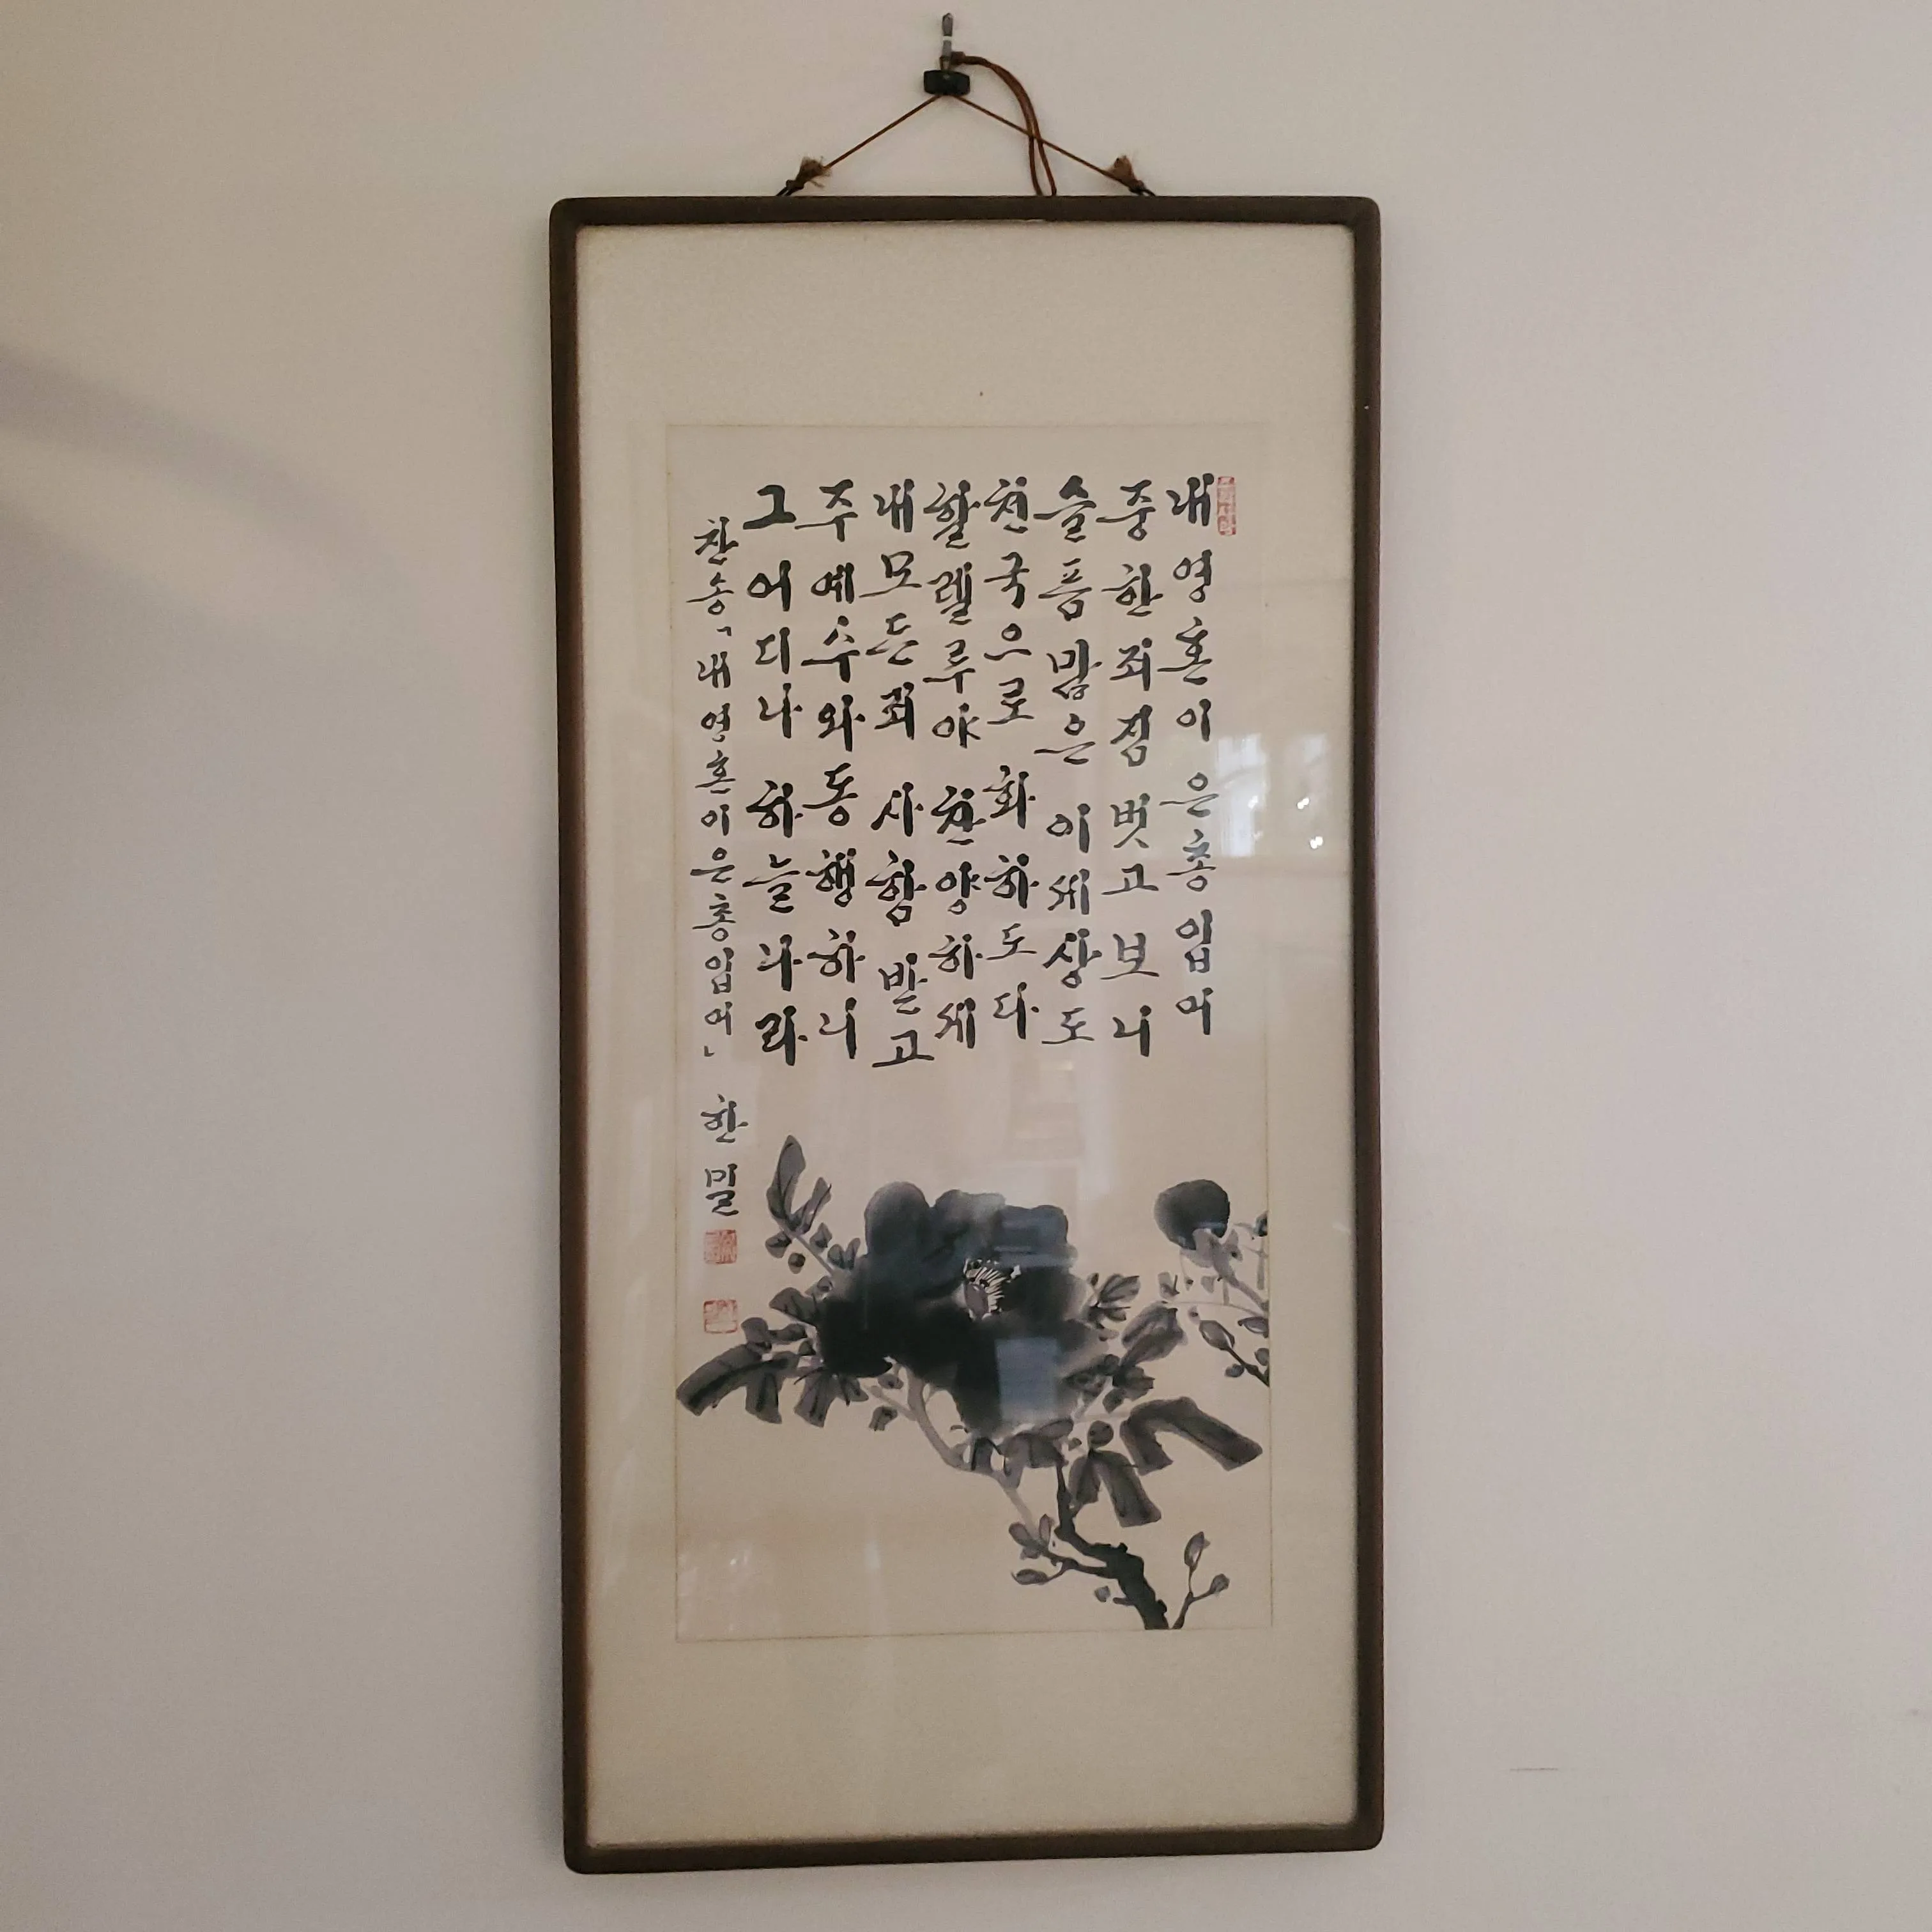 내 영혼이 은총 입어
중한 죄짐 벗고 보니
슬픔 많은 이 세상도
천국으로 화하도다
할렐루야 찬양하세
내 모든 죄 사함 받고
주 예수와 동행하니
그 어디나 하늘나라
찬송「내 영혼이 은총입어」 한밀